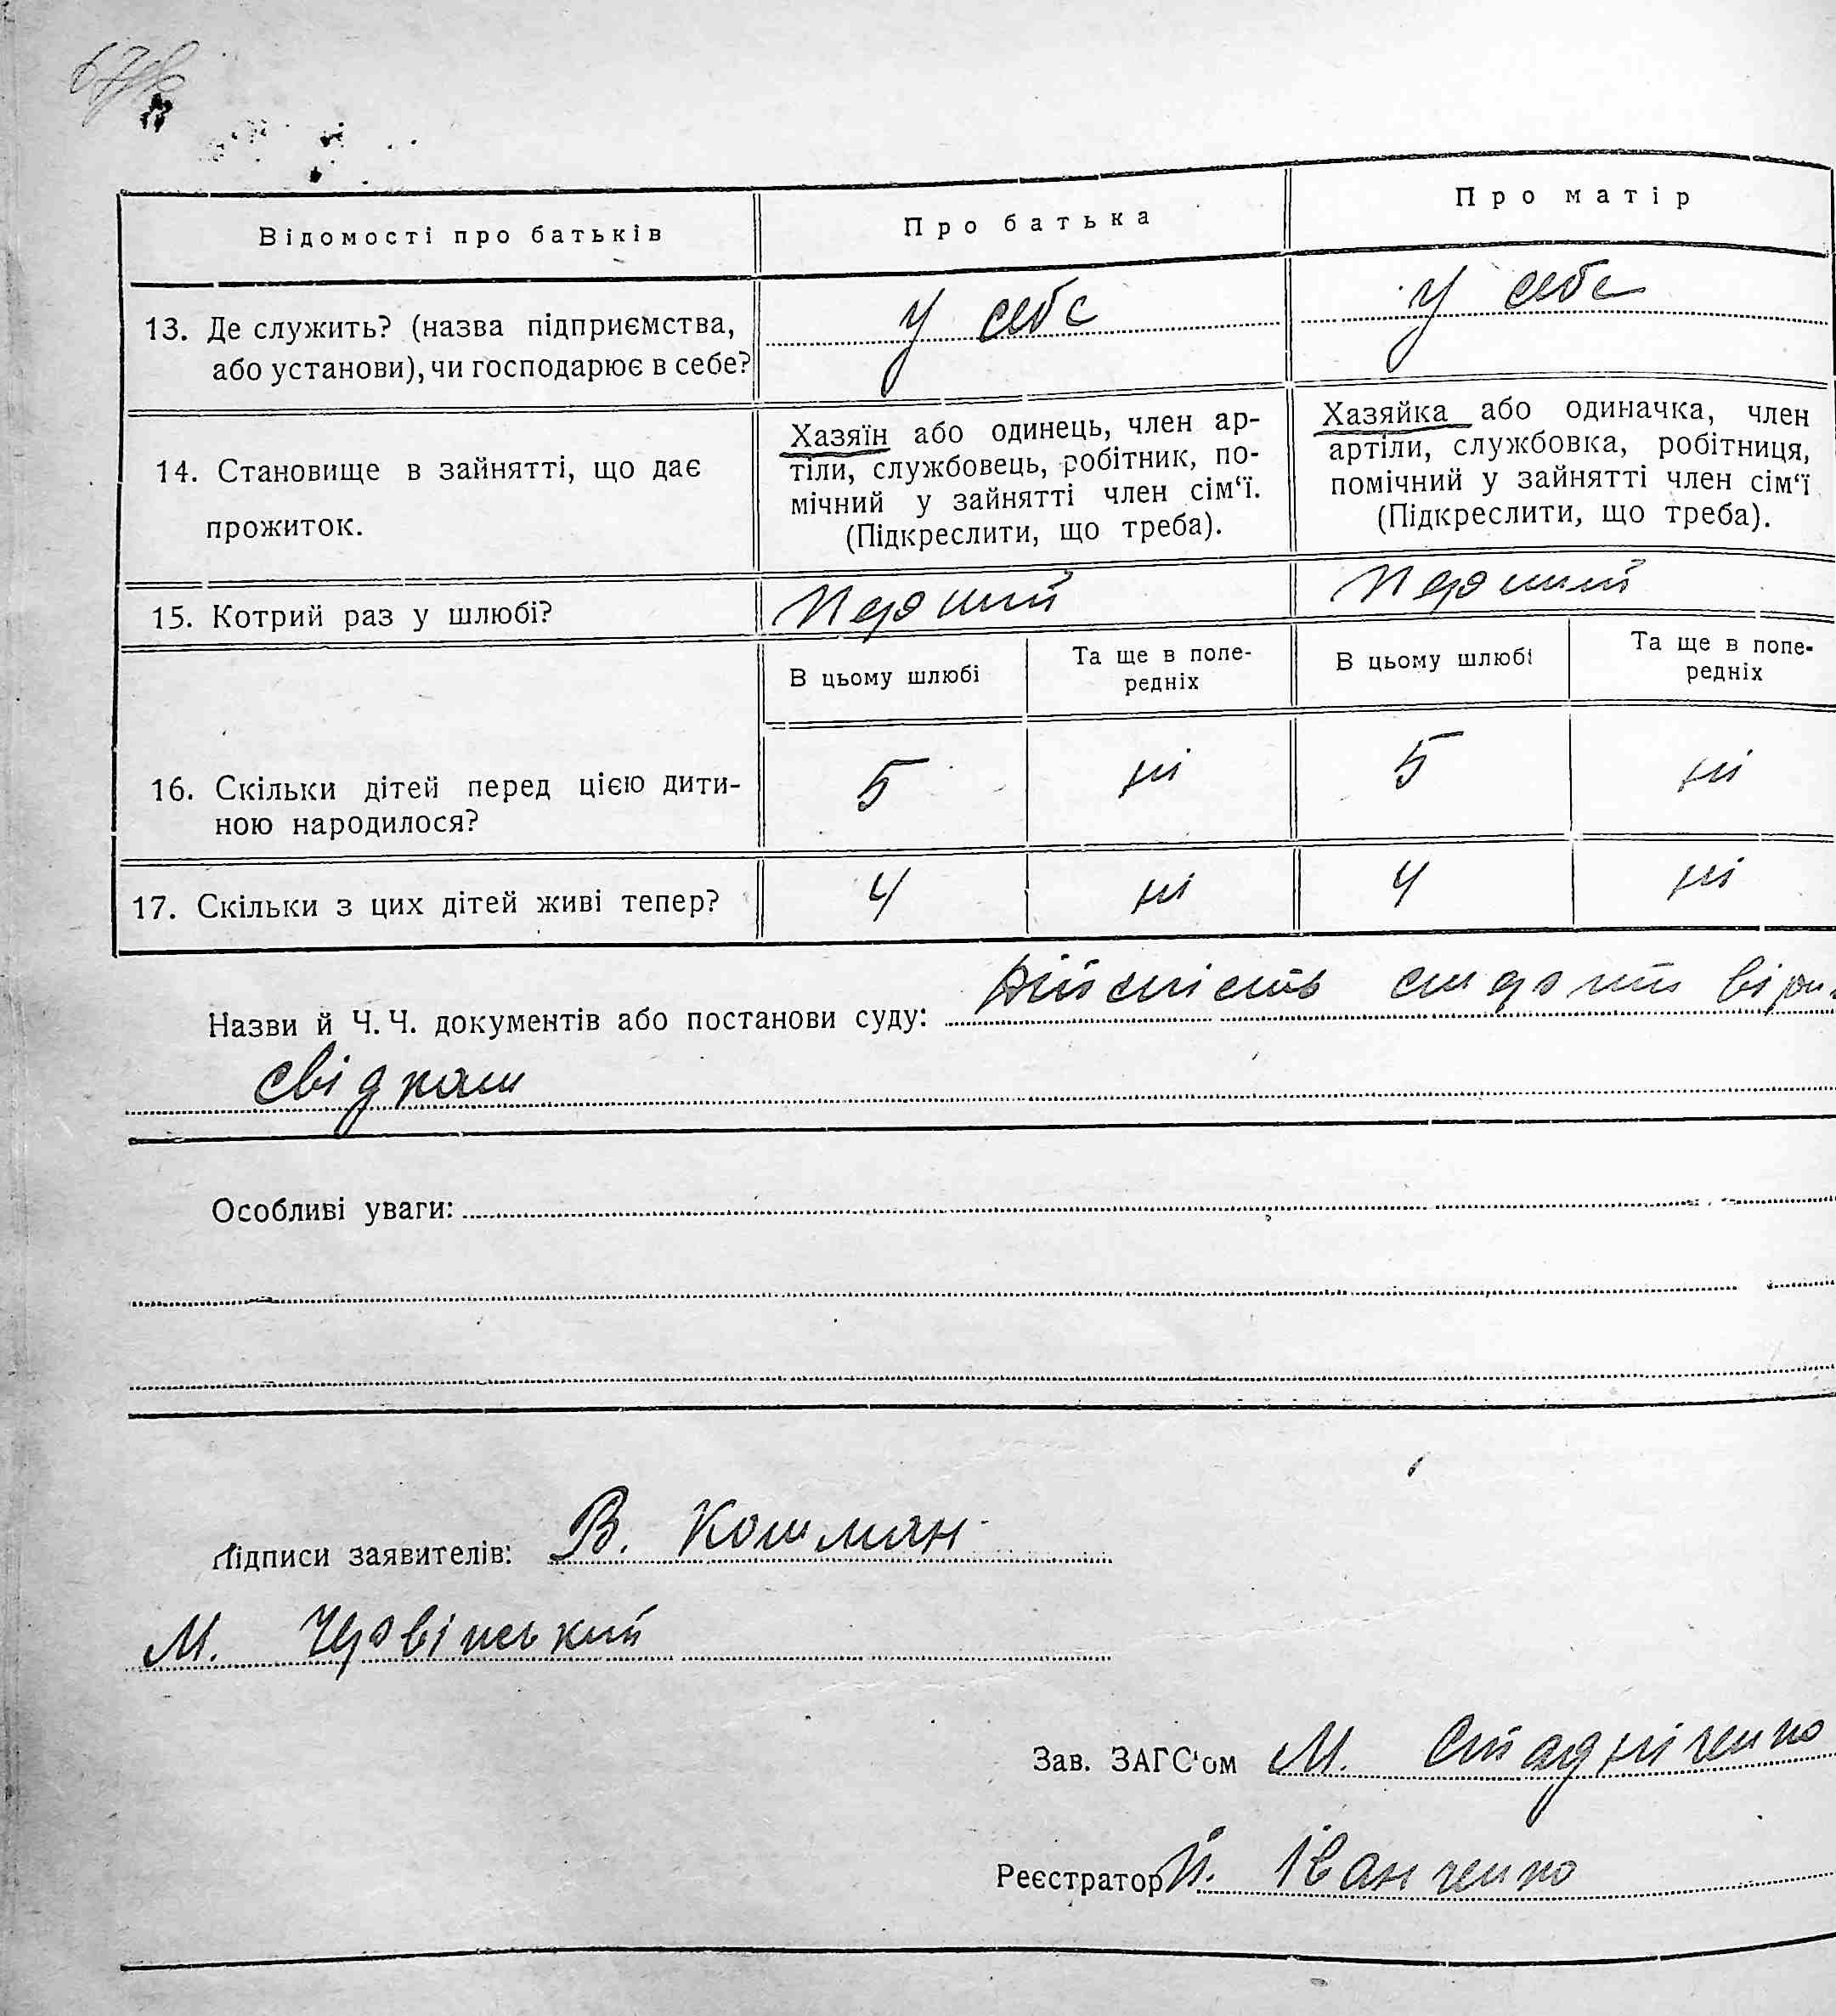 Відомості про батьків
Про батька
Про матір
13. Де служить? (назва підприємства,
або установи), чи господарює в себе?
у себе
у себе
14. Становище в зайнятті, що дає
прожиток.
Хазяїн або одинець, член ар-
тіли, службовець, робітник, по-
мічний у зайнятті член сім‘ї.
(Підкреслити, що треба).
Хазяйка або одиначка, член
артіли, службовка, робітниця,
помічний у зайнятті член сім‘ї
(Підкреслити, що треба).
15. Котрий раз у шлюбі?
Перший
Перший
В цьому шлюбі
Та ще в попе-
редніх
В цьому шлюбі
Та ще в попе-
редніх
16. Скільки дітей перед цією дити-
ною народилося?
5
ні
5
ні
17. Скільки з цих дітей живі тепер?
4
ні
4
ні
Назви й Ч.Ч. документів або постанови суду: Дійсність
свідкам
Особливі уваги:
Підписи заявителів: В. Кошман
М. Червінський
Зав. ЗАГС‘ом М. Стадніченко
Реєстратор Й. Іванченко